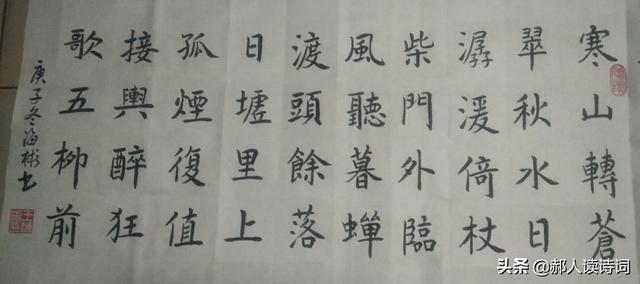 寒山轉蒼
翠秋水日
潺湲倚杖
柴門外臨
風聽暮蟬
渡頭餘落
日墟里上
孤煙復值
接輿醉狂
歌五柳前
庚子冬海彬书
头条 @郝人读诗词